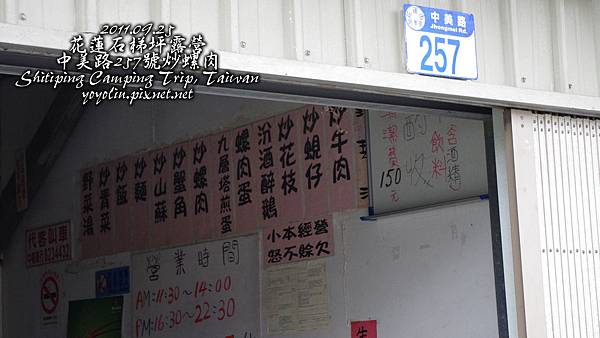 2011.09.25
花蓮石梯坪露營
中美路257號炒螺肉
Shitiping Camping Trip, Taiwan
yoyolin.pixnet.net
中美路
Jhongmei Rd.
257
炒牛肉
炒蜆仔
炒花枝
汾酒醉鵝
螺肉蛋
九層塔煎蛋
炒螺肉
炒蟹角
炒山蘇
炒麵
炒飯
炒青菜
野菜湯
含酒精
飲料
酌收
清潔費
150元
小本經營
恕不賒欠
代客叫車
8234432
營業時間
AM:11:30~14:00
PM:16:30~22:30